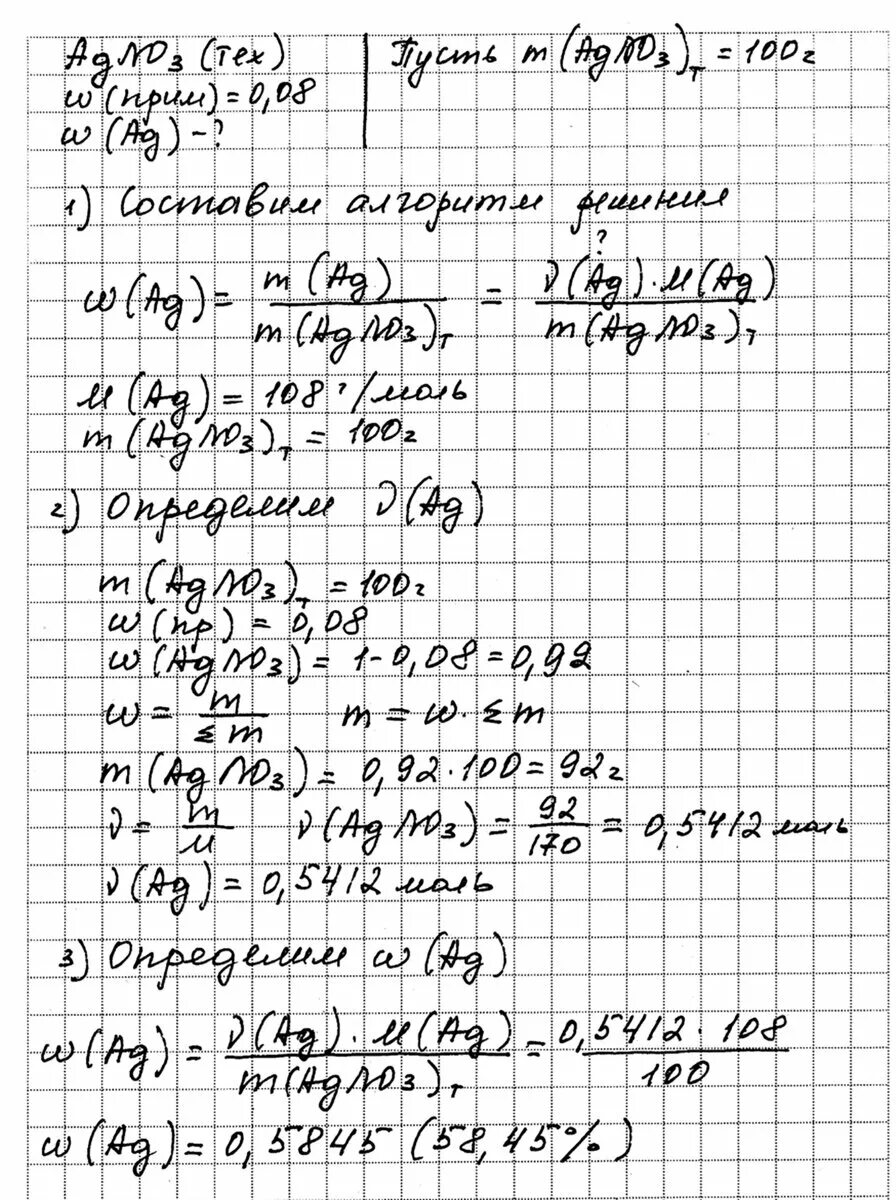 AgNO3 (тех)
w (прим) = 0,08
w (Ag) - ?
Пусть m (AgNO3)т = 100г
1) Составим алгоритм решения
?
w (Ag) = m (Ag) / m (AgNO3)т = ν (Ag) · M (Ag) / m (AgNO3)т
M (Ag) = 108 г/моль
m (AgNO3)т = 100г
2) Определим ν (Ag)
m (AgNO3)т = 100г
w (пр) = 0,08
w (AgNO3) = 1 - 0,08 = 0,92
w = m / Σm m = w · Σm
m (AgNO3) = 0,92 · 100 = 92г
ν = m / M ν (AgNO3) = 92 / 170 = 0,5412 моль
ν (Ag) = 0,5412 моль
3) Определим w (Ag)
w (Ag) = ν (Ag) · M (Ag) / m (AgNO3)т = 0,5412 · 108 / 100
w (Ag) = 0,5845 (58,45%)